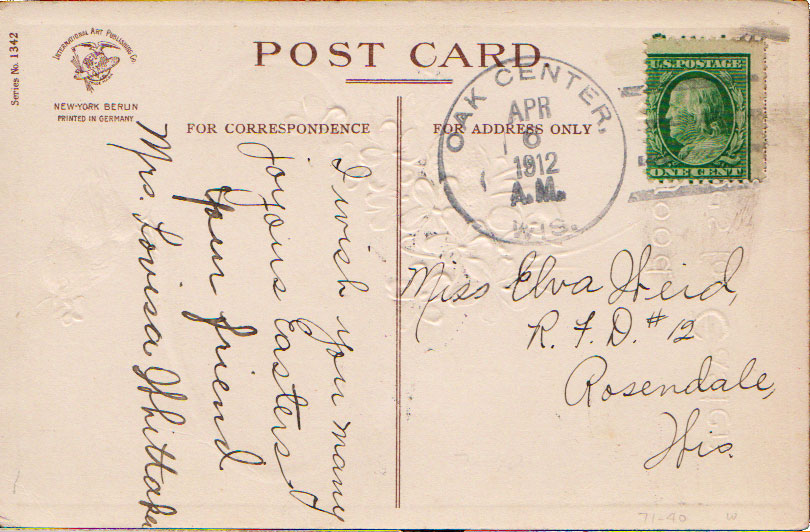 Series No. 1342
INTERNATIONAL ART PUBLISHING Co.
NEW-YORK BERLIN
PRINTED IN GERMANY
POST CARD.
FOR CORRESPONDENCE
FOR ADDRESS ONLY
OAK CENTER,
APR
6
1912
A.M.
WIS.
U.S. POSTAGE
ONE CENT
I wish you many
joyous Easters
your friend
Mrs. Lovisa Whittaker
Miss Elva Heid,
R. F. D. # 12
Rosendale,
Wis.
71-90 W